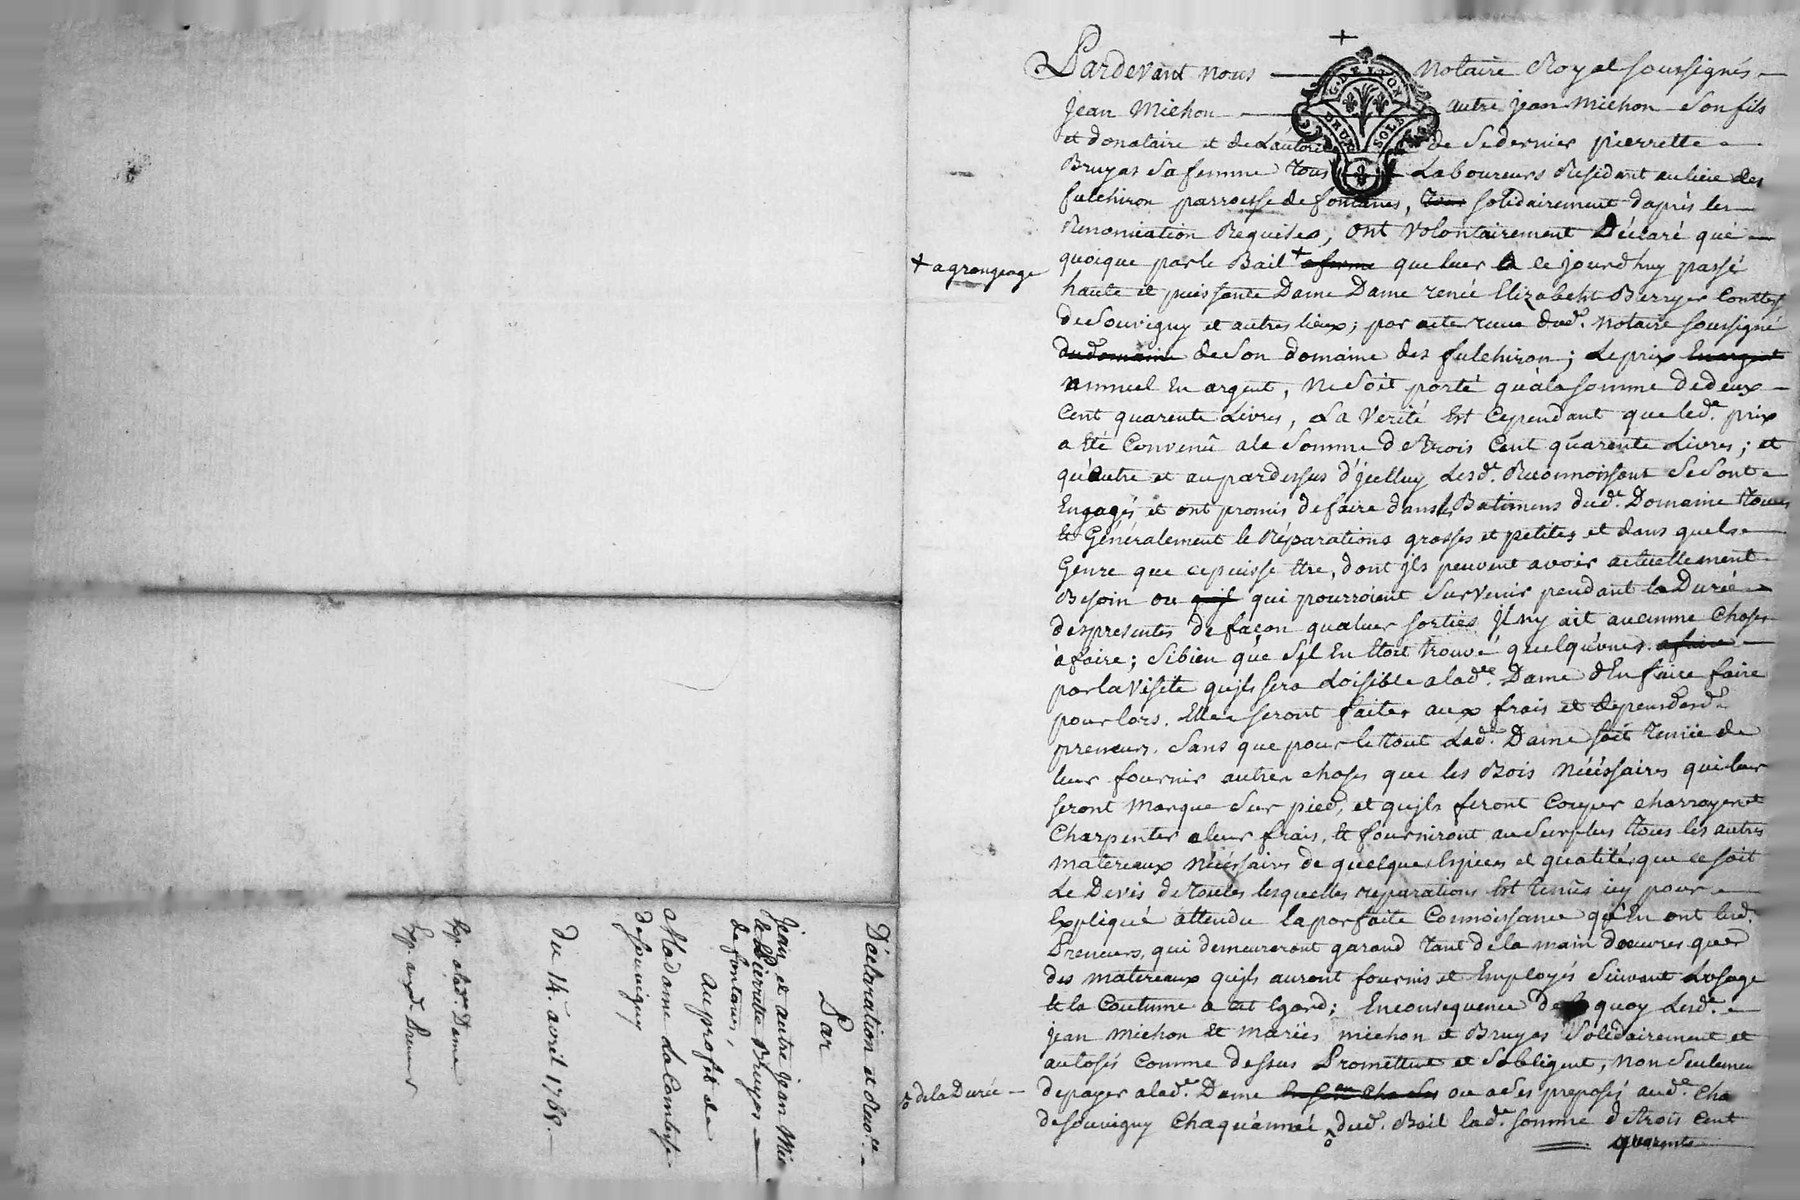 Pardevant nous notaire Royal soussignés
Jean Michon autre jean michon son fils
et donataire et de L'autorité de Sedernier pierrette
Bruyas Sa femme tous Laboureurs Residant au lieu des
fulchiron parroisse de fontanes, tous solidairement d'après les
Renonciation Requises, ont volontairement Déclaré que
quoique par le Bail + a ferme que leur a ce jourdhuy passé
+ a grangeage
haute et puissante Dame Dame renée Elizabeht Berryer Contesse
de Souvigny et autres lieux; par acte recue dud. notaire soussigné
dudomaine de Son domaine des fulchiron; Le prix En argent
annuel En argent, ne Soit porté qu'à la somme de deux
Cent quarente Livres, La Verité Est Cependant que led. prix
a Eté Convenû a la Somme de trois Cent quarente Livres; et
qu'outre et au pardessus d'jcelluy Lesd. Reconnoissant Se Sont
Engagés et ont promis de faire dans les Batimens dud. Domaine toutes
Et Généralement le Réparations grosses et petites et dans quels
Genre que ce puisse Etre, dont jls peuvent avoir actuellement
Besoin ou qui pourroient Survenir pendant la Durée
des presentes de façon qua luer sorties Jl ny ait aucunne Choses
a faire; Sibien que Sjl En Etoit trouvé quelqu'unes a faire
par la Visite qu'jl sera Loisible a lad. Dame d'En faire faire
pour lors. Elles seront faites aux frais et dépens desd.
preneurs. Sans que pour le tout Lad. Dame soit tenüe de
leur fournir autre choses que les Bois Nécéssaires qui leur
seront marque Sur pied, et qu'jls feront Couper charroyer et
Charpenter a leur frais, Et fourniront au Surplus tous les autres
materaux nécéssaires de quelque Espèces et qualités que ce soit
Le Devis de toutes lesquelles reparations Est tenûs icy pour
Expliqué attendu la parfaite Connoissance qu'En ont lesd.
Preneurs, qui demeureront garand tant de la main d'oeuvres que
des materaux qu'jls auront fournis et Employés Suivant L'usage
Et la Coutume a cet Egard; En consequence de quoy Lesd.
jean michon Et mariés michon et Bruyas Solidairement et
autosés comme dessus Promettent et S'obligent, non Seulement
de payer a lad. Dame ou a Ses preposés aud. Cha
de souvigny chaqu'année dud. Bail lad. somme de trois cent
de la Durée
quarente
Déclaration et
Par
Jean et autre jean Mic
et Pierrette Bruyas
de fontanes,
Au profit de
Madame La Contesse
de souvigny
du 14. avril 1788.
Exp. a lad. Dame
Exp. auxd. Preneurs